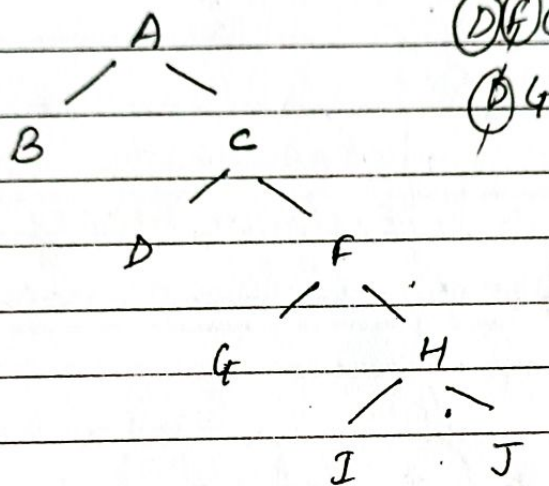 A
D F
D G
B C
D F
G H
I J